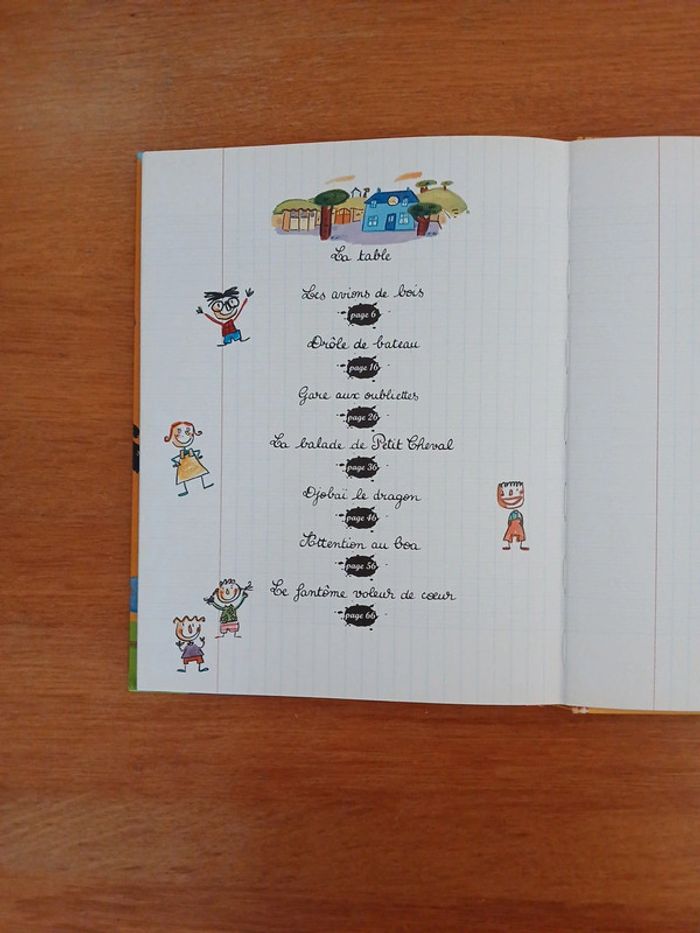 La table
Les avions de bois
page 6
Drôle de bateau
page 16
Gare aux oubliettes
page 26
La balade de Petit Cheval
page 36
Djobaï le dragon
page 46
Attention au boa
page 56
Le fantôme voleur de cœur
page 66